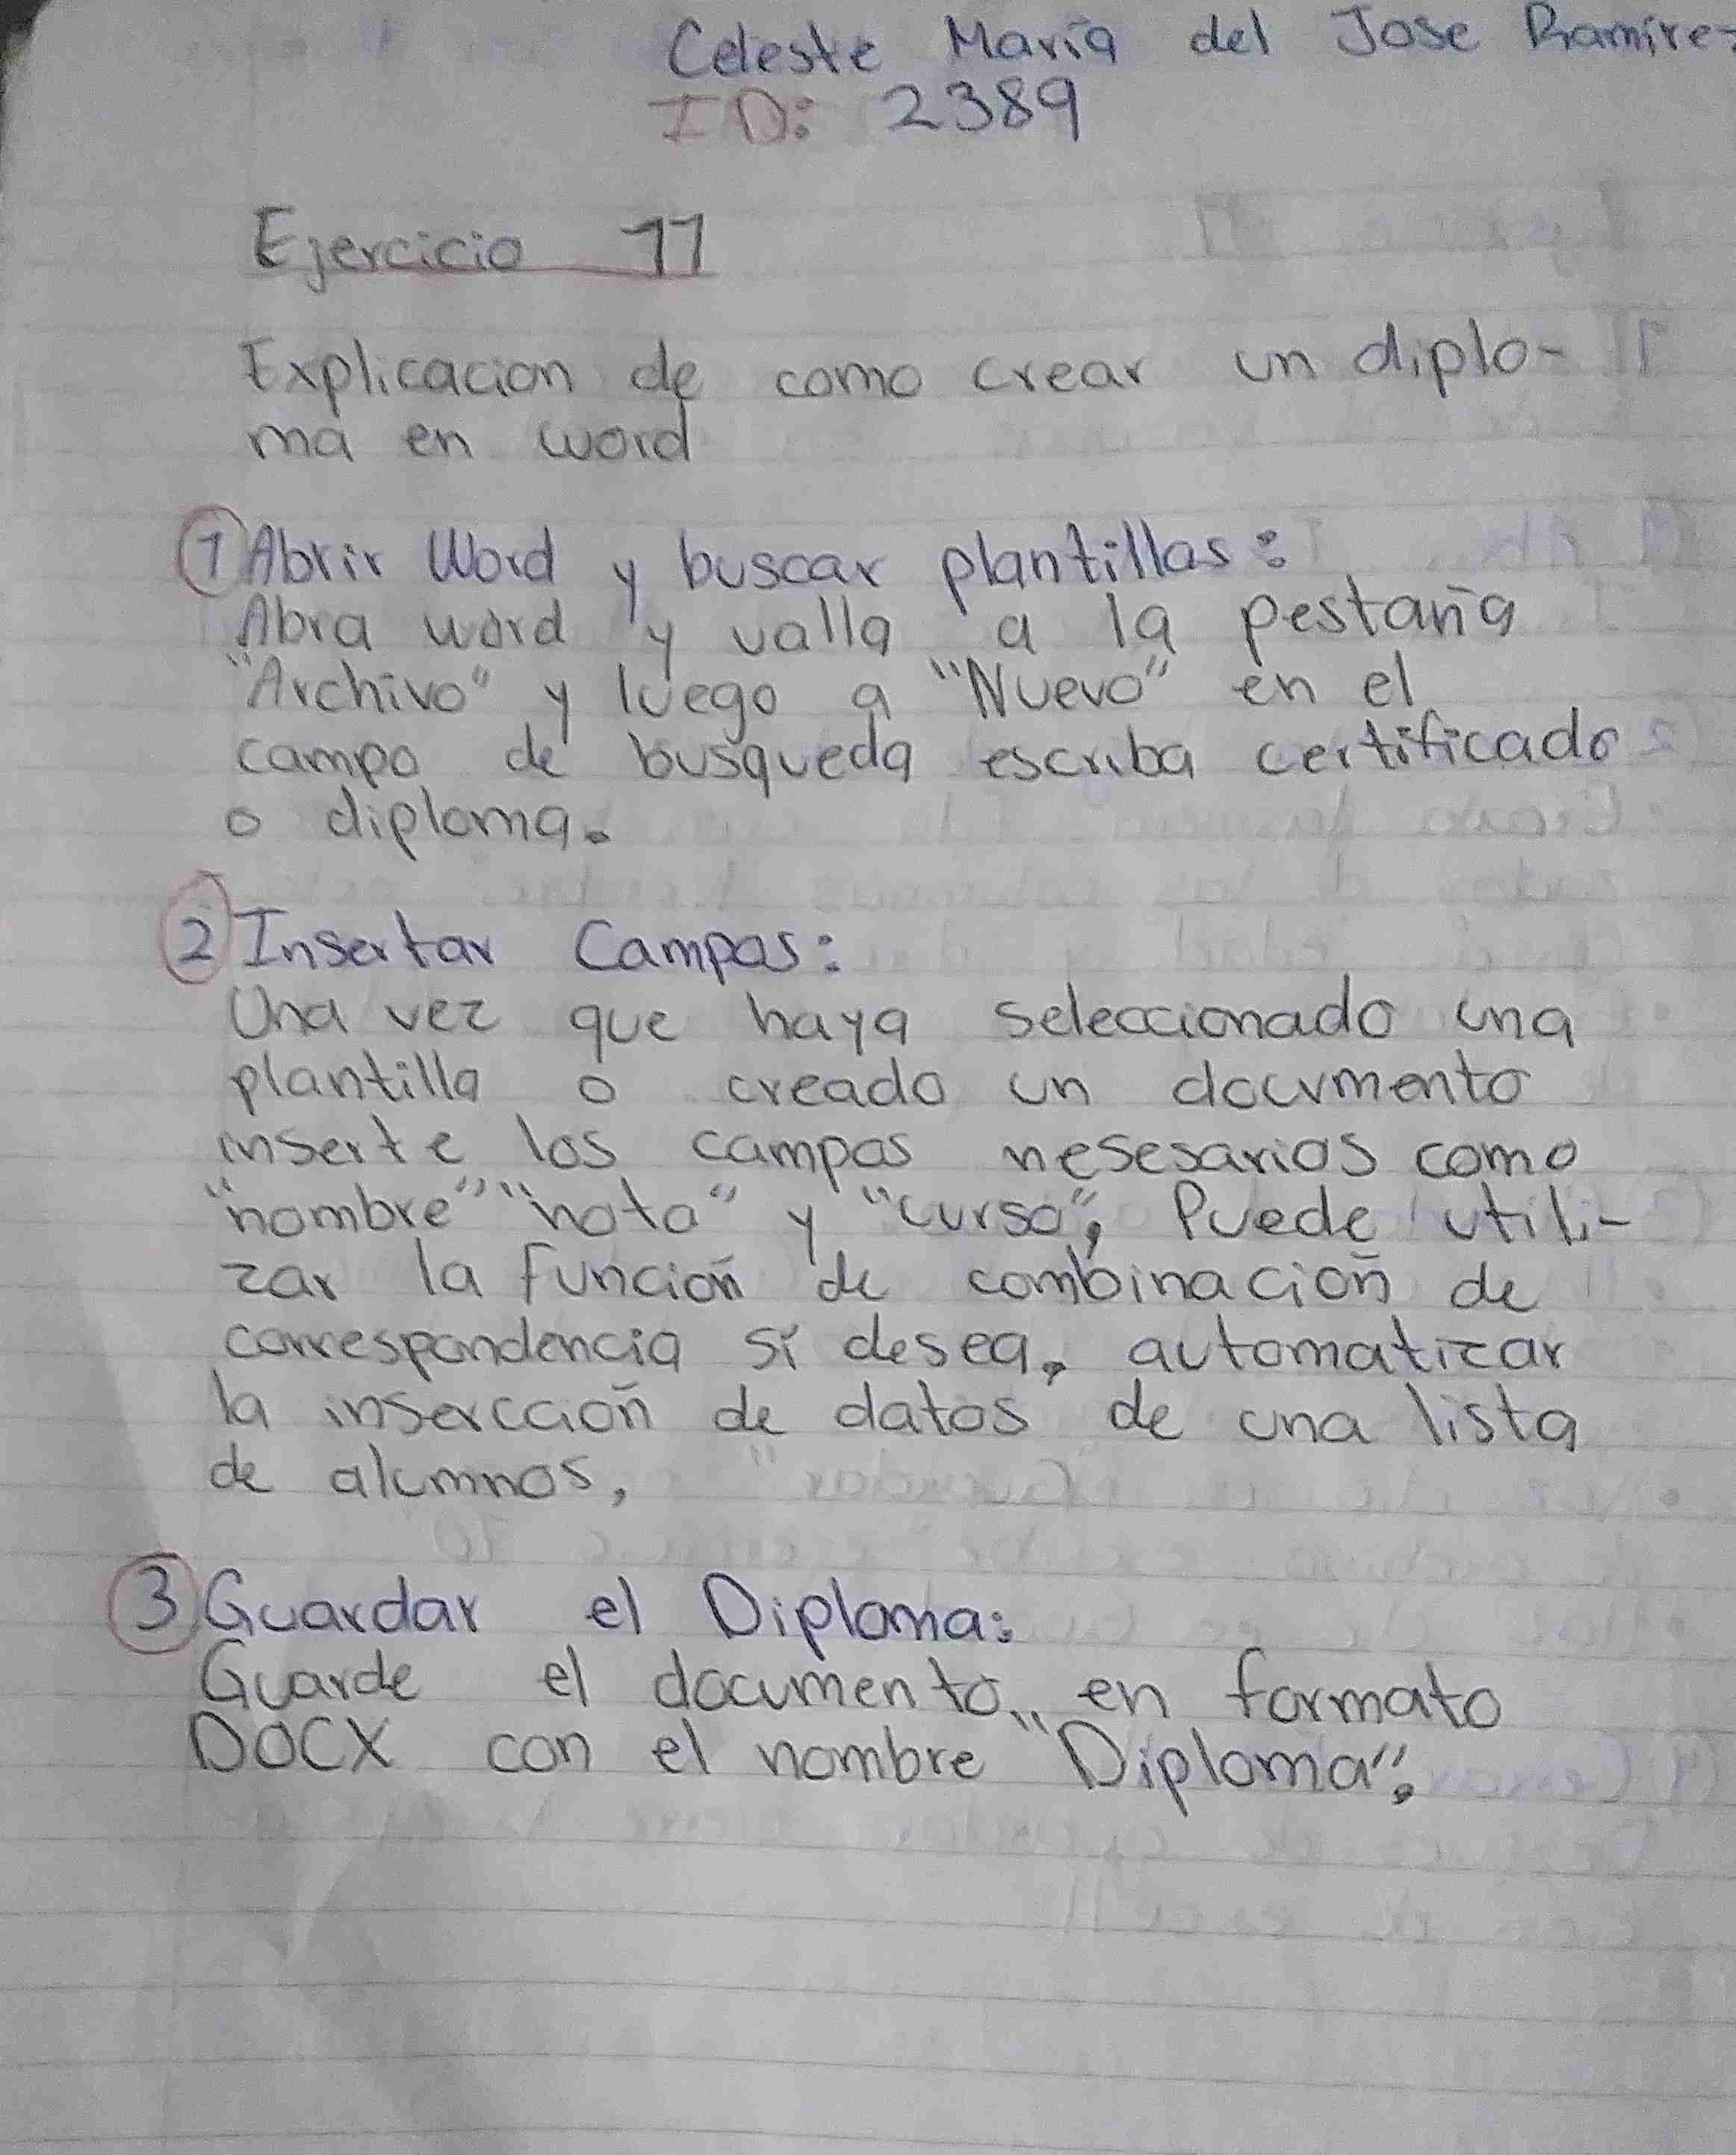 Celeste María del Jose Ramirez
ID: 2389
Ejercicio 11
Explicacion de como crear un diplo-
ma en word
1 Abrir Word y buscar plantillas:
Abra word y valla a la pestaña
"Archivo" y luego a "Nuevo" en el
campo de busqueda escriba certificado
o diploma.
2 Insertar Campos:
Una vez que haya seleccionado una
plantilla o creado un documento
inserte los campos nesesarios como
"nombre" "nota" y "curso", Puede utili-
zar la función de combinación de
correspondencia sí desea, automatizar
la insercción de datos de una lista
de alumnos,
3 Guardar el Diploma:
Guarde el documento en formato
DOCX con el nombre "Diploma".